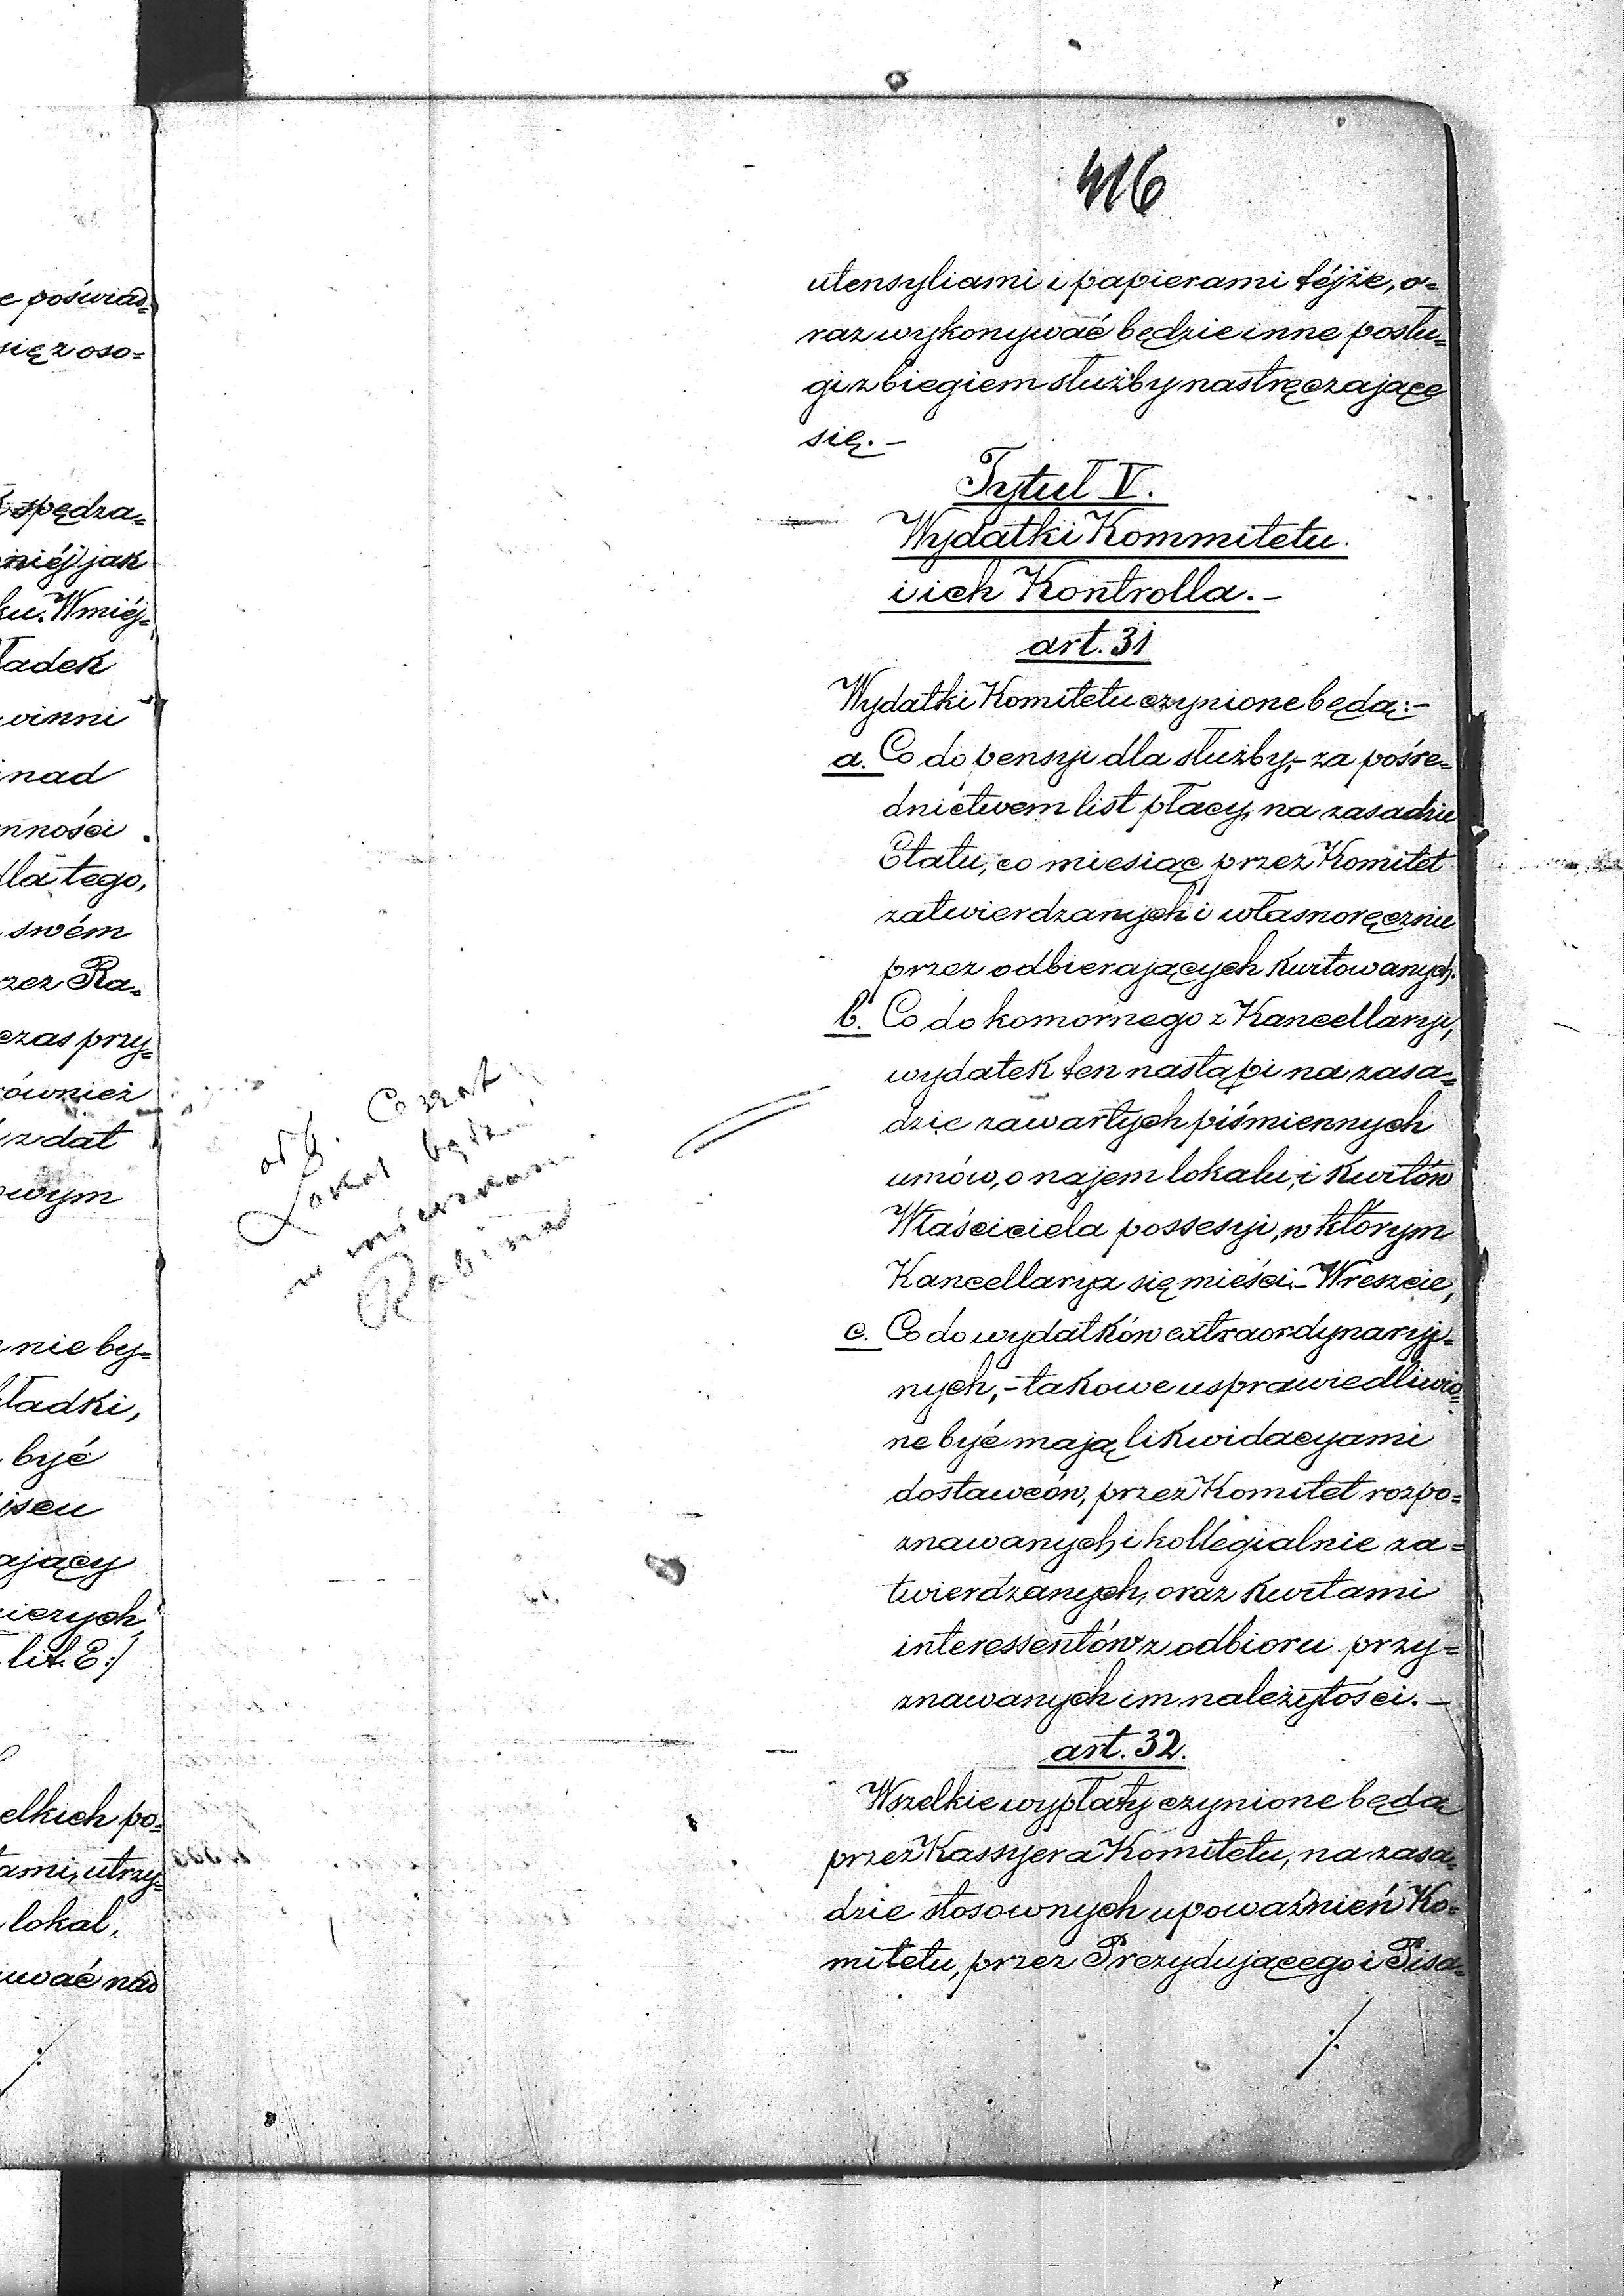 e poświad=
się z oso=
spędza=
niéj jak
ku. W miéj=
ładek
winni
nad
nności
dla tego,
swém
rzez Ra=
czas przy=
ównież
z dat
owym
nie by=
ładki,
być
jscu
ający
niczych
lit. E:/
elkich po=
tami, utrzy=
lokal,
uwać nad
416
utensyliami i papierami téjże, o=
raz wykonywać będzie inne posłu=
gi z biegiem służby nastręczające
się. –
Tytuł V.
Wydatki Kommitetu.
i ich Kontrolla. –
art. 31
Wydatki Komitetu czynione będą: –
a. Co do pensyi dla służby, – za pośre=
dnictwem list płacy, na zasadzie
Etatu, co miesiąc przez Komitet
zatwierdzanych i własnoręcznie
przez odbierających kwitowanych.
b. Co do komornego z Kancellaryi,
wydatek ten nastąpi na zasa=
dzie zawartych piśmiennych
umów, o najem lokalu, i kwitów
Właściciela possesyi, w którym
Kancellarya się mieści. – Wreszcie,
c. Co do wydatków extraordynaryj=
nych, – takowe usprawiedliwio=
ne być mają likwidacyami
dostawców, przez Komitet rozpo=
znawanych i kollegialnie za=
twierdzanych, oraz kwitami
interessentów z odbioru przy=
znawanych im należytości. –
art. 32.
Wszelkie wypłaty czynione będą
przez Kassyera Komitetu, na zasa=
dzie stosownych upoważnień Ko=
mitetu, przez Prezydującego i Pisa=
./.
Lokal
w
Rabina